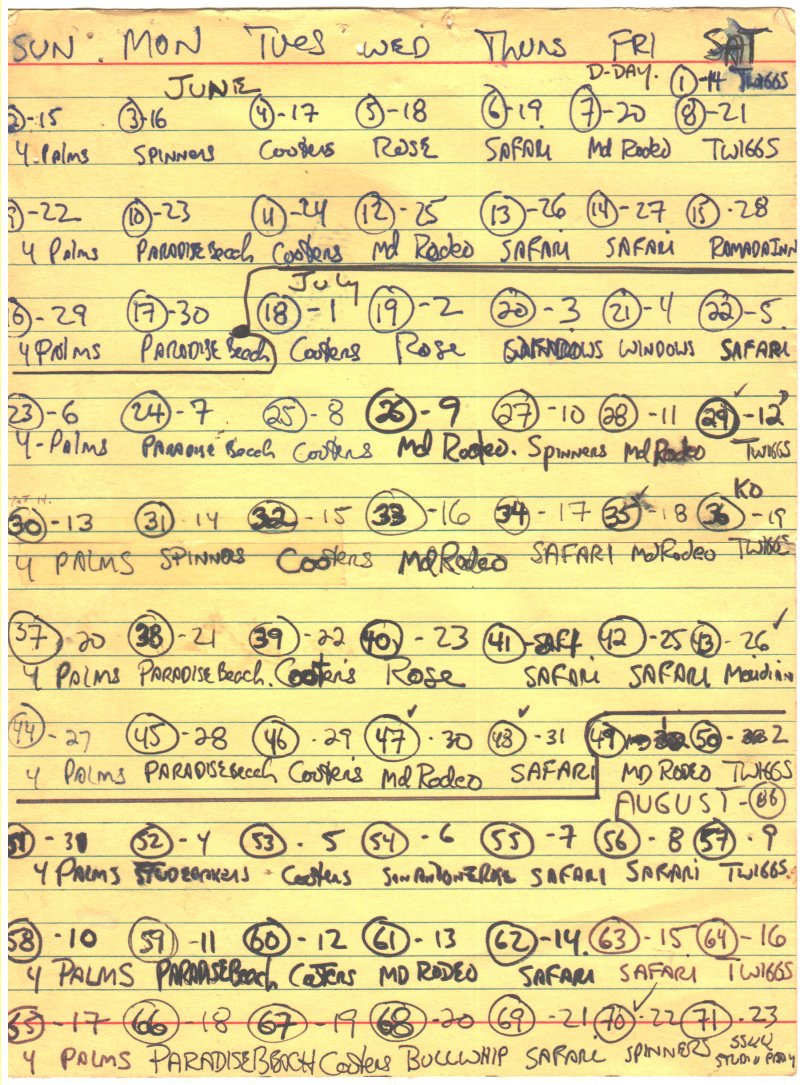 SUN. MON TUES WED THURS FRI SAT
JUNE D-DAY. ①-14 TWIGGS
2)-15 ③-16 ④-17 ⑤-18 ⑥-19 ⑦-20 ⑧-21
4 Palms SPINNERS Cooters ROSE SAFARI Md Rodeo TWIGGS
9)-22 ⑩-23 ⑪-24 ⑫-25 ⑬-26 ⑭-27 ⑮-28
4 Palms PARADISE Beach Cooters Md Rodeo SAFARI SAFARI RAMADA INN
July
16)-29 ⑰-30 ⑱-1 ⑲-2 ⑳-3 ㉑-4 ㉒-5
4 Palms PARADISE Beach Cooters Rose WINDOWS SAFARI
23-6 24-7 25-8 26-9 27-10 28-11 29-12
4-Palms PARADISE Beach Cooters Md Rodeo. Spinners Md Rodeo TWIGGS
KO
30-13 31-14 32-15 33-16 34-17 35-18 36-19
4 PALMS SPINNERS Cooters Md Rodeo SAFARI Md Rodeo TWIGGS
37-20 38-21 39-22 40-23 41- 42-25 43-26
4 PALMS PARADISE Beach. Cooters Rose SAFARI SAFARI Meridian
44-27 45-28 46-29 47-30 48-31 49 50-2
4 PALMS PARADISE Beach Cooters Md Rodeo SAFARI MD RODEO TWIGGS
AUGUST-86
51-3 52-4 53-5 54-6 55-7 56-8 57-9
4 PALMS STUDEBAKERS Cooters SAN ANTONE ROSE SAFARI SAFARI TWIGGS
58-10 59-11 60-12 61-13 62-14 63-15 64-16
4 PALMS PARADISE Beach Cooters MD RODEO SAFARI SAFARI TWIGGS
65-17 66-18 67-19 68-20 69-21 70-22 71-23
4 PALMS PARADISE BEACH Cooters BULLWHIP SAFARI SPINNERS